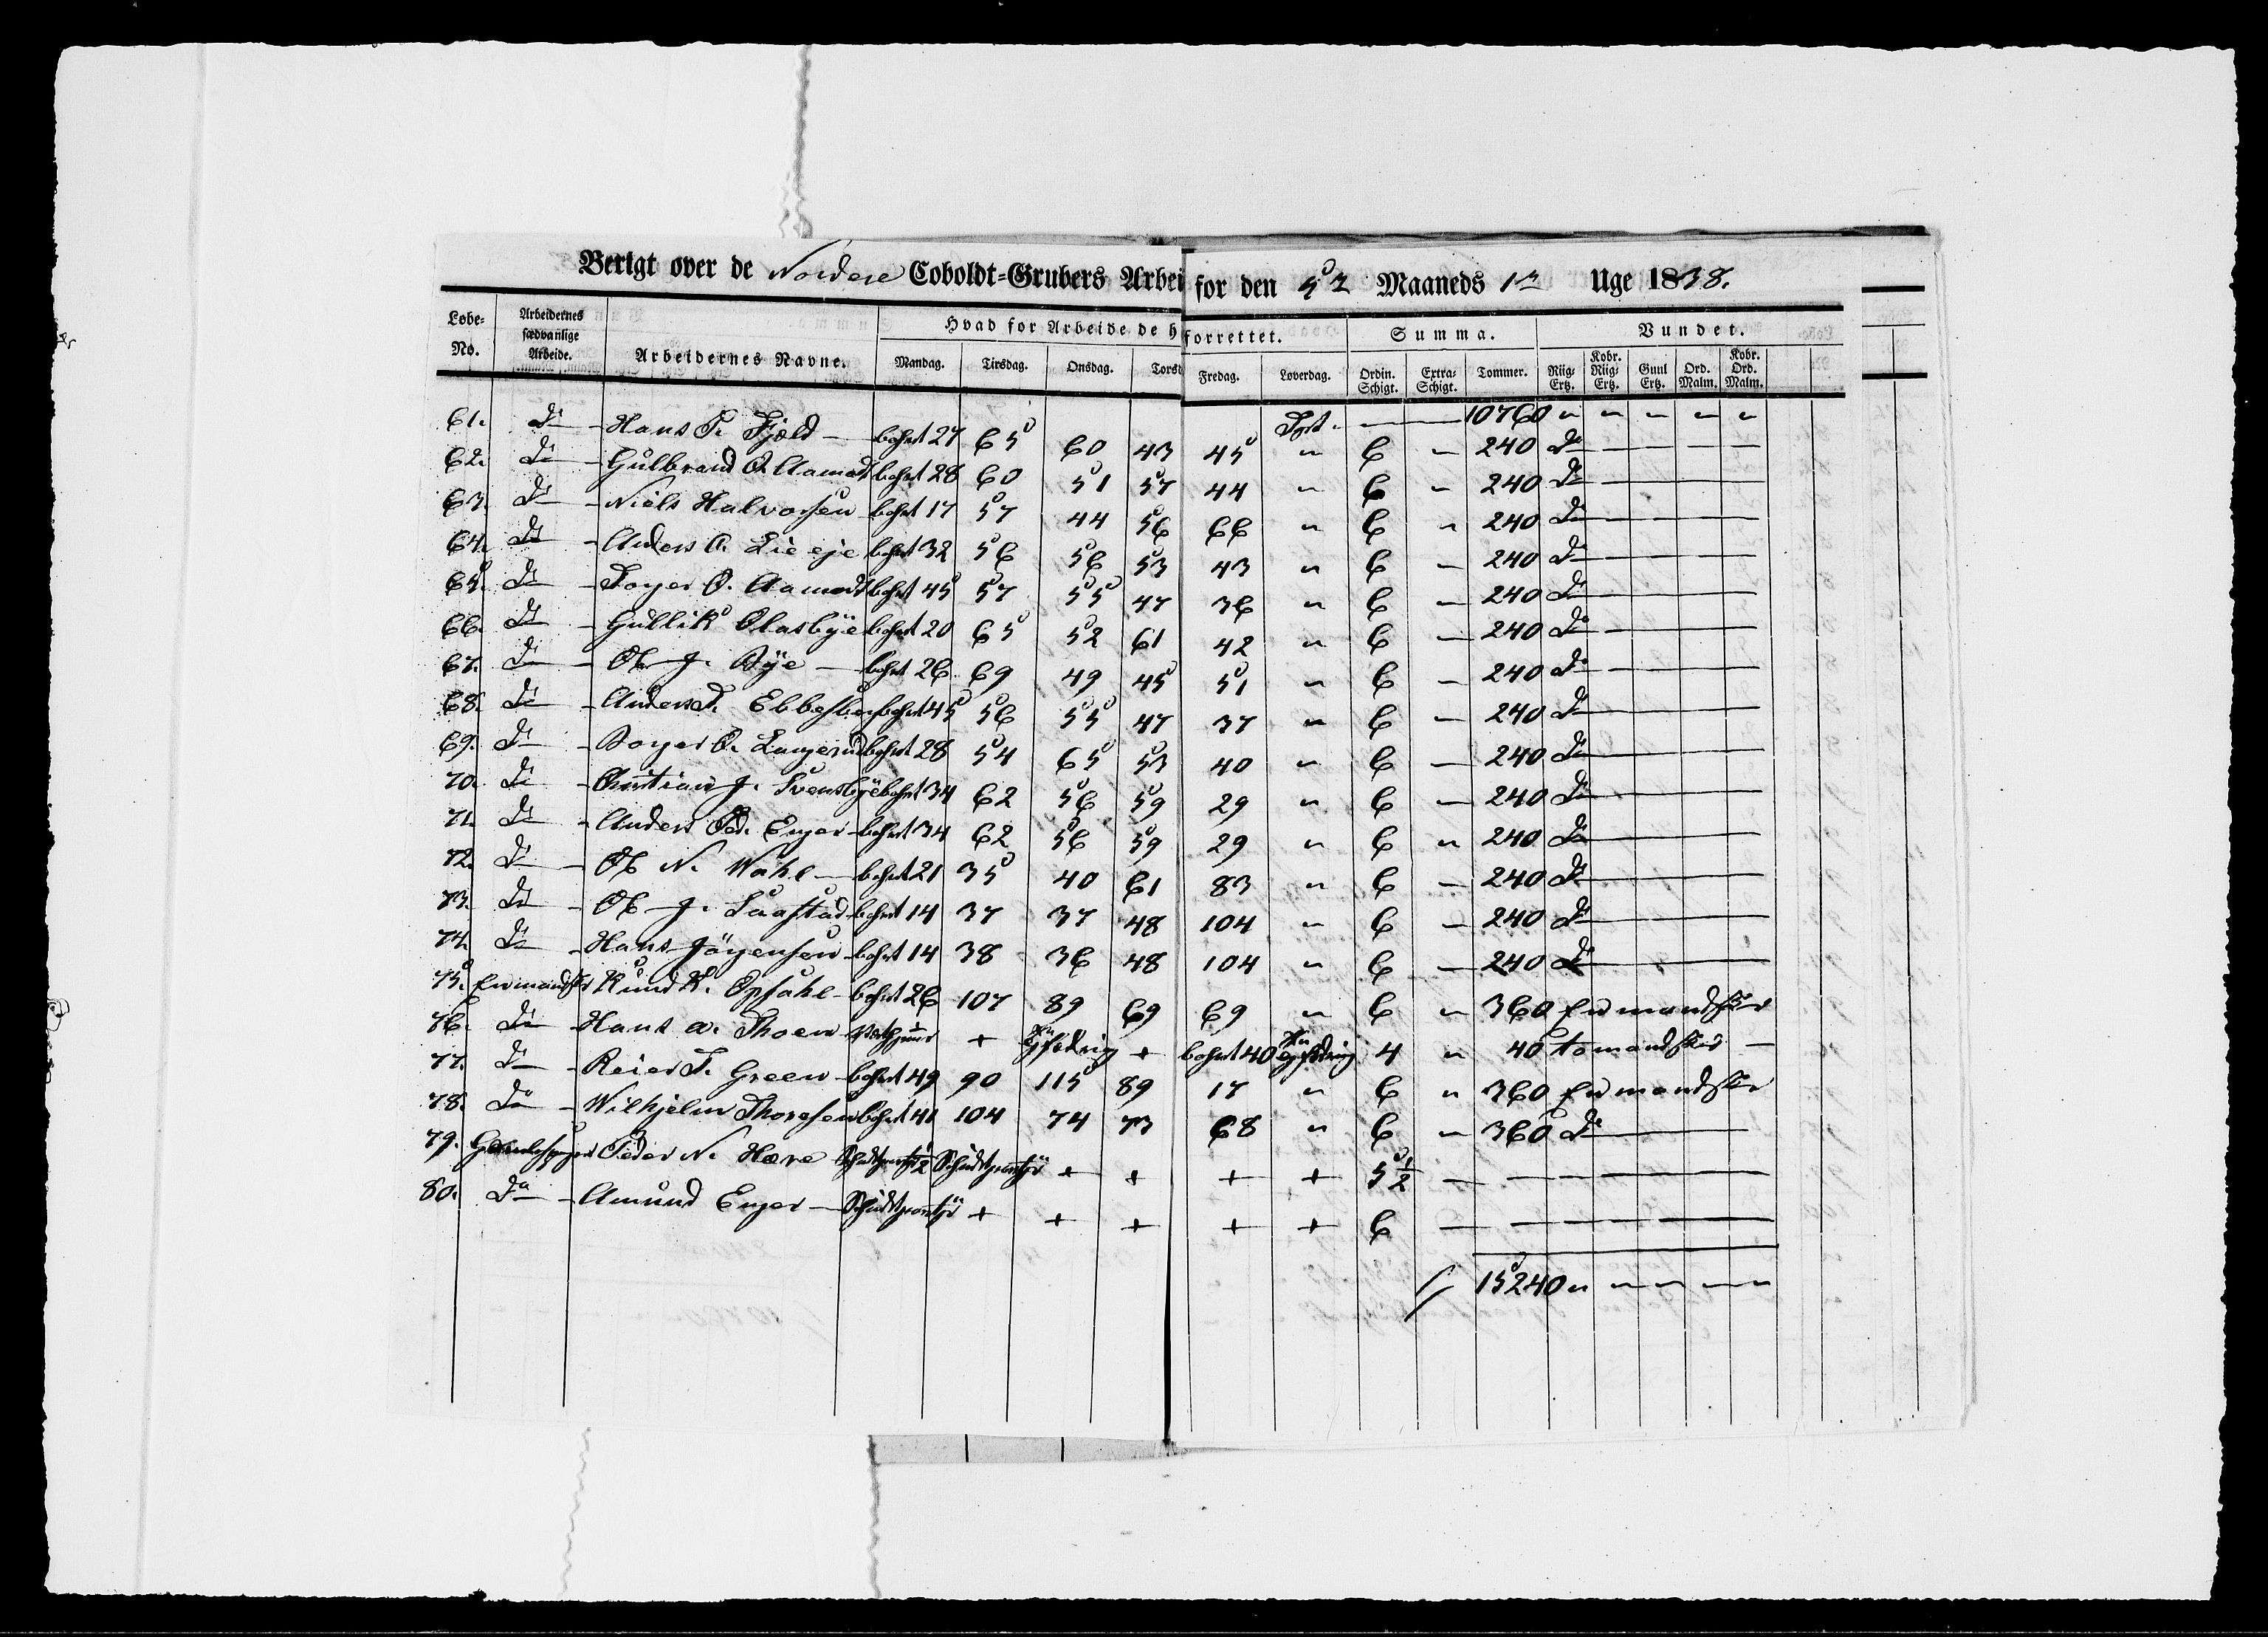 Berigt over de Nordere Coboldt-Grubers Arbei for den 5te Maaneds 1te Uge 1838.
Lobe-No. Arbeidernes sædvanlige Arbeide. Arbeidernes Navne. Hvad for Arbeide de h forrettet. Summa. Vundet.
Mandag. Tirsdag. Onsdag. Torsd Fredag. Løverdag. Ordin. Schigt. Extra-Schigt. Tommer. Riig-Ertz. Kobr. Riig-Ertz. Guul Ertz. Ord. Malm. Kobr. Ord. Malm.
Tprt. — — 10760 " " " " "
61. Do — Hans T. Fjeld — bohrt 27 65 60 43 45 " 6 — 240 Do
62. Do — Gulbrand O. Aamodt bohrt 28 60 51 57 44 " 6 " 240 Do
63. Do — Niels Halvorsen — bohrt 17 57 44 56 66 " 6 " 240 Do
64. Do — Anders A. Lie eje bohrt 32 56 56 53 43 " 6 — 240 Do
65. Do — Torger O. Aamodt bohrt 45 57 55 47 36 " 6 — 240 Do
66. Do — Gullik Olasbÿe bohrt 20 65 52 61 42 " 6 — 240 Do
67. Do — Ole J. Bÿe — bohrt 26 69 49 45 51 " 6 — 240 Do
68. Do — Anders T. Ebbesben bohrt 45 56 55 47 37 " 6 — 240 Do
69. Do — Borger O. Langerud bohrt 28 54 65 53 40 " 6 — 240 Do
70. Do — Christian J. Svensbÿe bohrt 34 62 56 59 29 " 6 — 240 Do
71. Do — Anders Ped. Enger — bohrt 34 62 56 59 29 " 6 " 240 Do
72. Do — Ole N. Wahl — bohrt 21 35 40 61 83 " 6 — 240 Do
73. Do — Ole J. Saastad — bohrt 14 37 37 48 104 " 6 — 240 Do
74. Do — Hans Jörgensen — bohrt 14 38 36 48 104 " 6 — 240 Do
75. Enmandsbr Knud K. Opsahl — bohrt 26 107 89 69 69 " 6 " 360 Enmandsbr
76. Do — Hans A. Thoen + + bohrt 40 4 " 40 tomandsbr —
77. Do — Reier T. Green — bohrt 49 90 115 89 17 " 6 " 360 Enmandsbr
78. Do — Wilhjelm Thoresen bohrt 41 104 74 73 68 " 6 — 360 Do
79. Peder N. Hære + + + + 5½ —
80. Do — Amund Enger — + + + + + 6 —
15240 " " " " "